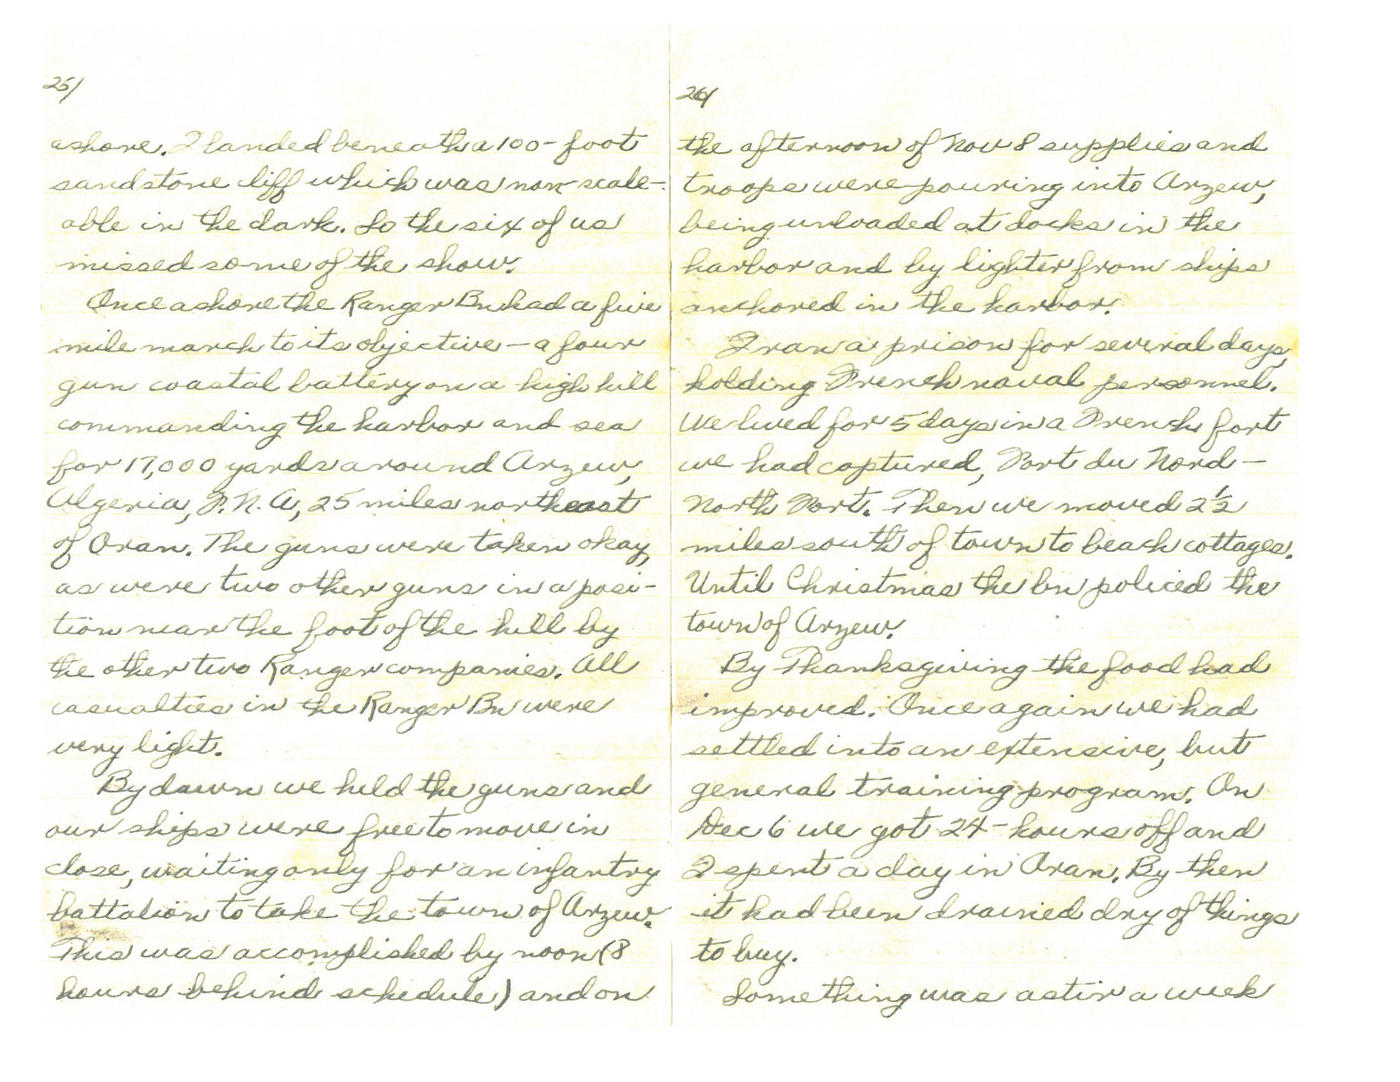 25/
ashore. I landed beneath a 100-foot
sandstone cliff which was non-scale-
able in the dark. So the six of us
missed some of the show.
Once ashore the Ranger Bn had a five
mile march to its objective — a four
gun coastal battery on a high hill
commanding the harbor and sea
for 17,000 yards around Arzew,
Algeria, F.N.A, 25 miles northeast
of Oran. The guns were taken okay,
as were two other guns in a posi-
tion near the foot of the hill by
the other two Ranger companies. All
casualties in the Ranger Bn were
very light.
By dawn we held the guns and
our ships were free to move in
close, waiting only for an infantry
battalion to take the town of Arzew.
This was accomplished by noon (8
hours behind schedule) and on
26/
the afternoon of Nov 8 supplies and
troops were pouring into Arzew,
being unloaded at docks in the
harbor and by lighter from ships
anchored in the harbor.
I ran a prison for several days,
holding French naval personnel.
We lived for 5 days in a French fort
we had captured, Fort du Nord —
North Fort. Then we moved 2½
miles south of town to beach cottages.
Until Christmas the bn policed the
town of Arzew.
By Thanksgiving the food had
improved. Once again we had
settled into an extensive, but
general training program. On
Dec 6 we got 24-hours off and
I spent a day in Oran. By then
it had been drained dry of things
to buy.
Something was astir a week